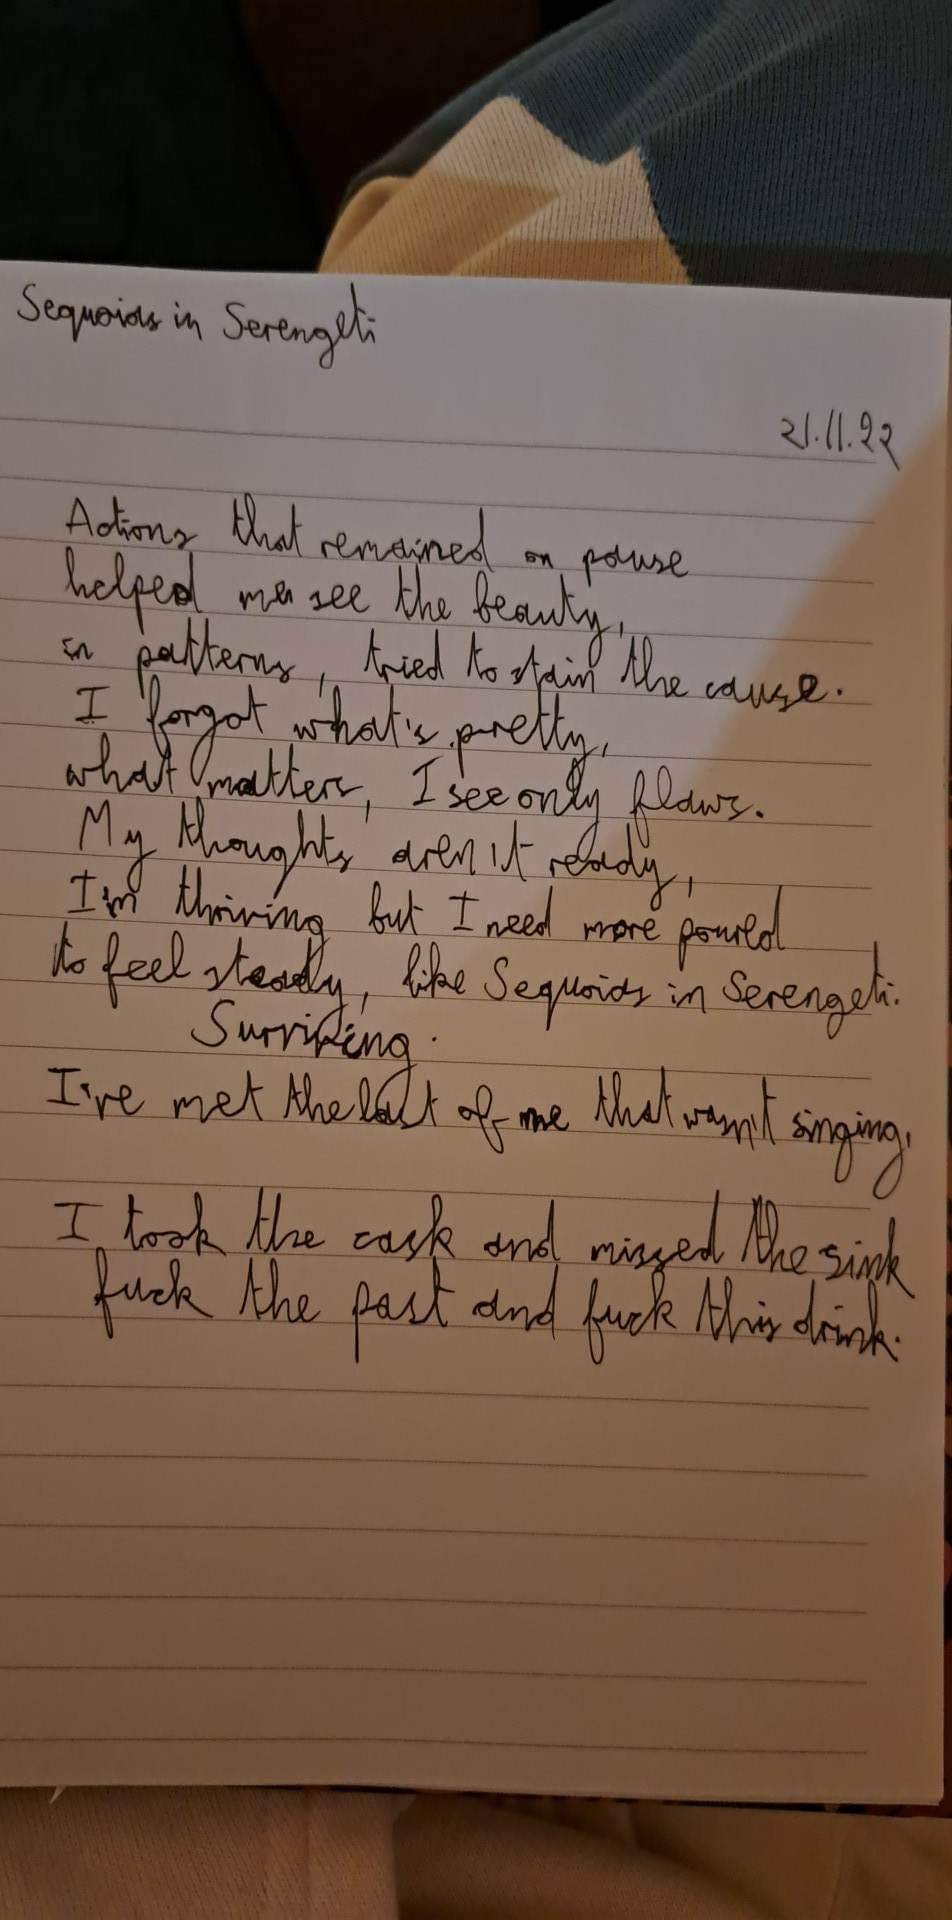 Sequoias in Serengeti
21.11.22
Actions that remained on pause
helped me see the beauty,
in patterns, tried to stain the cause.
I forgot what's pretty,
what matters, I see only flaws.
My thoughts aren't ready,
I'm thriving but I need more poured
to feel steady, like Sequoias in Serengeti.
Surviving.
I've met the last of me that wasn't singing.
I took the cask and missed the sink
fuck the past and fuck this drink.